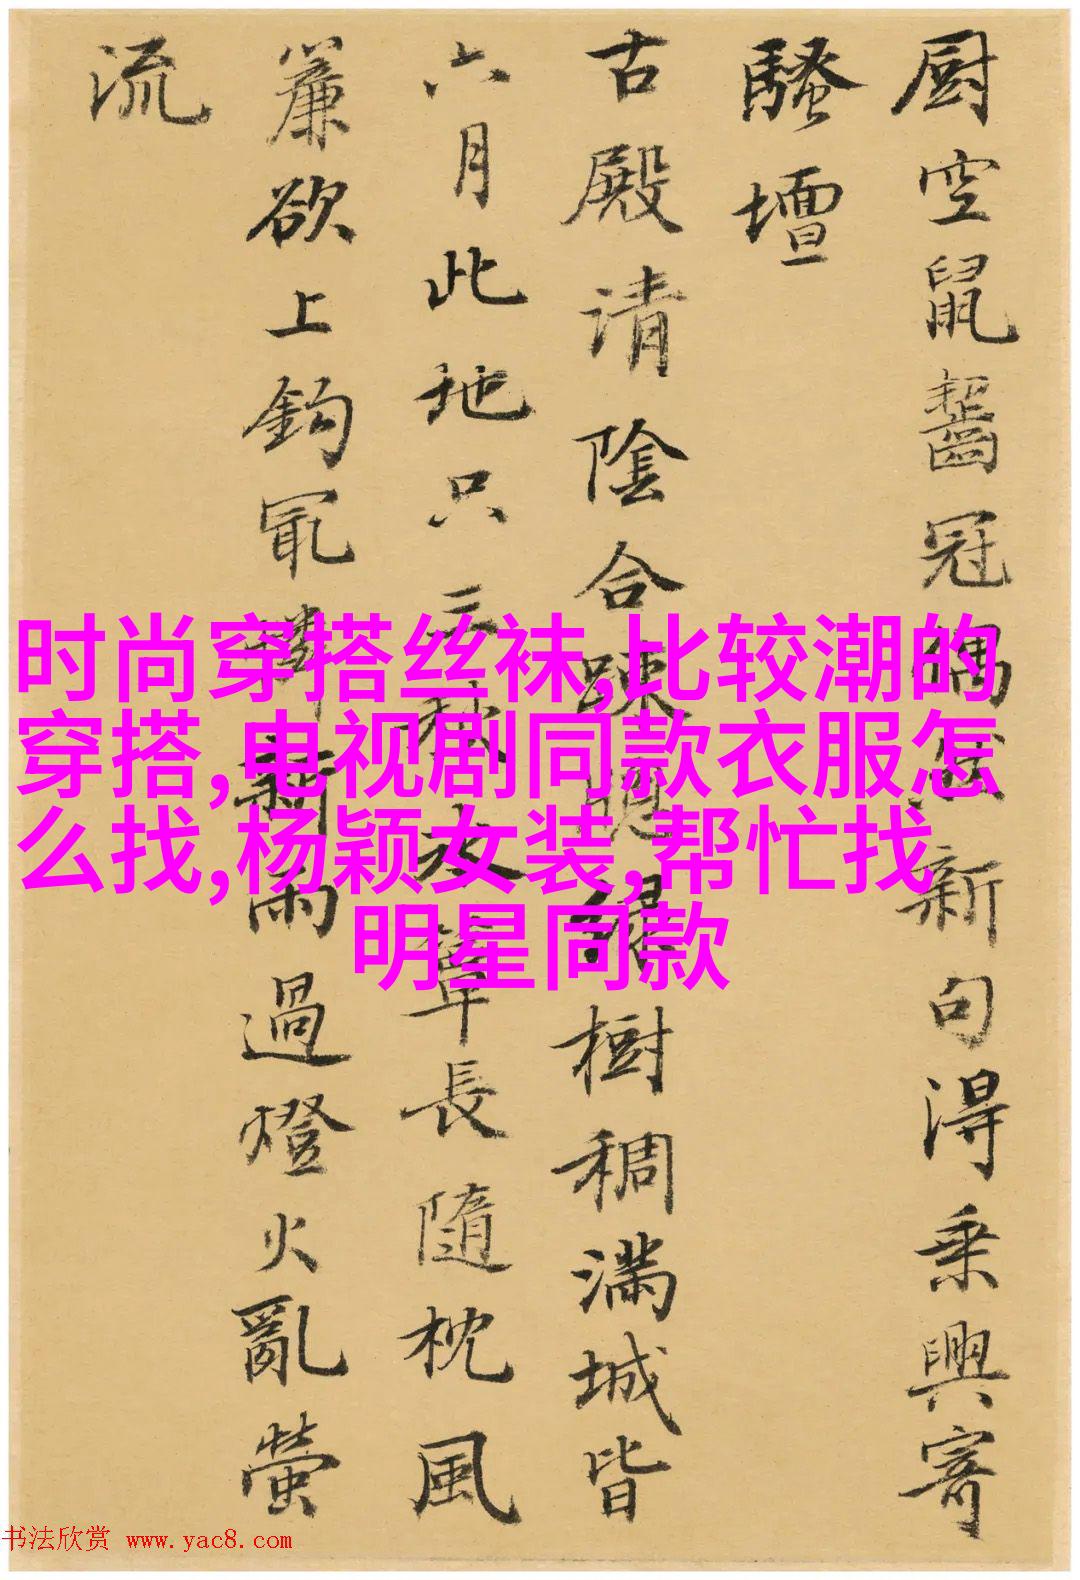 厨空鼠齧冠偶然新句得乘興寄
騷壇
古殿清陰合踈牕緑樹稠滿城皆
六月此地只三秋水簟長隨枕風
簾欲上鈎冣憐新雨過燈火亂螢
流
时尚穿搭丝袜,比较潮的
穿搭,电视剧同款衣服怎
么找,杨颖女装,帮忙找
明星同款
书法欣赏 www.yac8.com